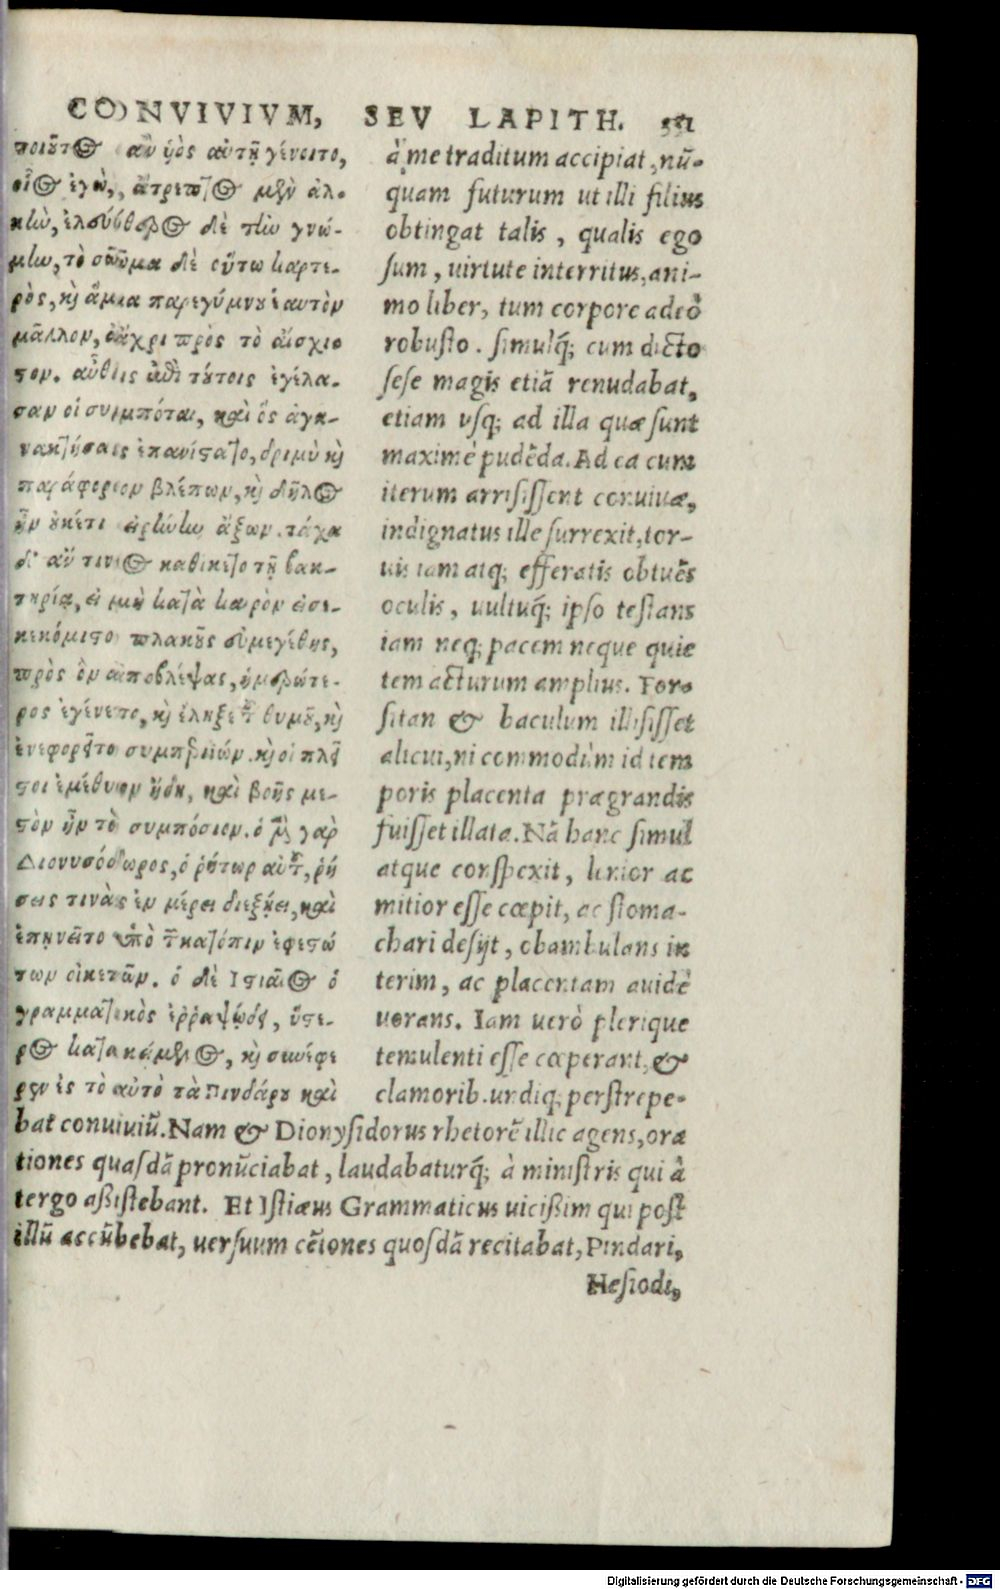 CONVIVIVM, SEV LAPITH.
τοιοῦτος ἂν ὑὸς αὐτῇ γένοιτο,
οἷος ἐγώ, ἄτρεπτος μὲν ἀλ-
κὴν, ἐλεύθερος δὲ τὴν γνώ-
μην, τὸ σῶμα δὲ οὕτω καρτε-
ρὸς, κ̀ ἅμα παρεγύμνου ἑαυτὸν
μᾶλλον, ἄχρι πρὸς τὸ αἴσχισ
τον. αὖθις ἐπὶ τούτοις ἐγέλα-
σαν οἱ συμπόται, καὶ ὃς ἀγα-
νακτήσας ἐπανίστατο, δριμὺ κ̀
παράφορον βλέπων, κ̀ δῆλος
ἦν οὐκέτι εἰρήνην ἄξων. τάχα
δ' ἄν τινος καθίκετο τῇ βακ-
τηρίᾳ, εἰ μὴ κατὰ καιρὸν εἰσε-
κεκόμιστο πλακοῦς εὐμεγέθης,
πρὸς ὃν ἀποβλέψας, ἡμερώτε-
ρος ἐγένετο, κ̀ ἔληξε τοῦ θυμοῦ, κ̀
ἐνεφορεῖτο συμπεριιών. κ̀ οἱ πλεῖ
στοι ἐμέθυον ἤδη, καὶ βοῆς με-
στὸν ἦν τὸ συμπόσιον. ὁ μὲν γὰρ
Διονυσόδωρος, ὁ ῥήτωρ αὐτοῦ, ῥή
σεις τινὰς ἐν μέρει διεξῄει, καὶ
ἐπῃνεῖτο ὑπὸ τῶν κατόπιν ἐφεστώ
των οἰκετῶν. ὁ δὲ Ιστιαῖος ὁ
γραμματικὸς ἐρραψῴδει, ὕστε-
ρος κατακείμενος, κ̀ συνέφε
ρεν ἐς τὸ αὐτὸ τὰ Πινδάρου καὶ
à me traditum accipiat, nũ-
quam futurum ut illi filius
obtingat talis, qualis ego
sum, uirtute interritus, ani-
mo liber, tum corpore adeò
robusto. simulq́; cum dicto
sese magis etiã renudabat,
etiam vsq; ad illa quæ sunt
maximè pudẽda. Ad ea cum
iterum arrisissent conuiuæ,
indignatus ille surrexit, tor-
uis iam atq; efferatis obtuẽs
oculis, uultuq́; ipso testans
iam neq; pacem neque quie
tem acturum amplius. For-
sitan & baculum illisisset
alicui, ni commodùm id tem
poris placenta prægrandis
fuisset illata. Nã hanc simul
atque conspexit, lenior ac
mitior esse cœpit, ac stoma-
chari desijt, obambulans in
terim, ac placentam auidè
uorans. Iam uerò plerique
temulenti esse cœperant, &
clamorib. undiq; perstrepe-
bat conuiuiũ. Nam & Dionysidorus rhetorẽ illic agens, ora
tiones quasdã pronũciabat, laudabaturq́; à ministris qui à
tergo assistebant. Et Istiæus Grammaticus uicissim qui post
illũ accũbebat, uersuum cẽtones quosdã recitabat, Pindari,
Hesiodi,
Digitalisierung gefördert durch die Deutsche Forschungsgemeinschaft - DFG